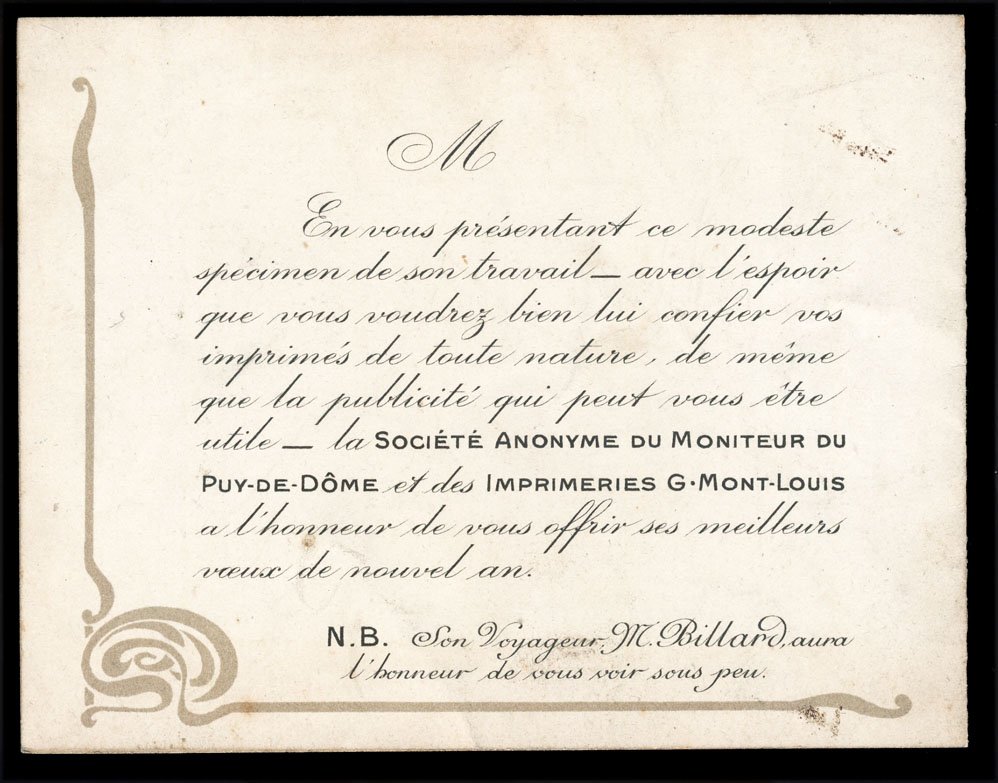 M
En vous présentant ce modeste
spécimen de son travail — avec l'espoir
que vous voudrez bien lui confier vos
imprimés de toute nature, de même
que la publicité qui peut vous être
utile — la SOCIÉTÉ ANONYME DU MONITEUR DU
PUY-DE-DÔME et des IMPRIMERIES G·MONT-LOUIS
a l'honneur de vous offrir ses meilleurs
vœux de nouvel an.
N.B. Son Voyageur, M. Billard, aura
l'honneur de vous voir sous peu.